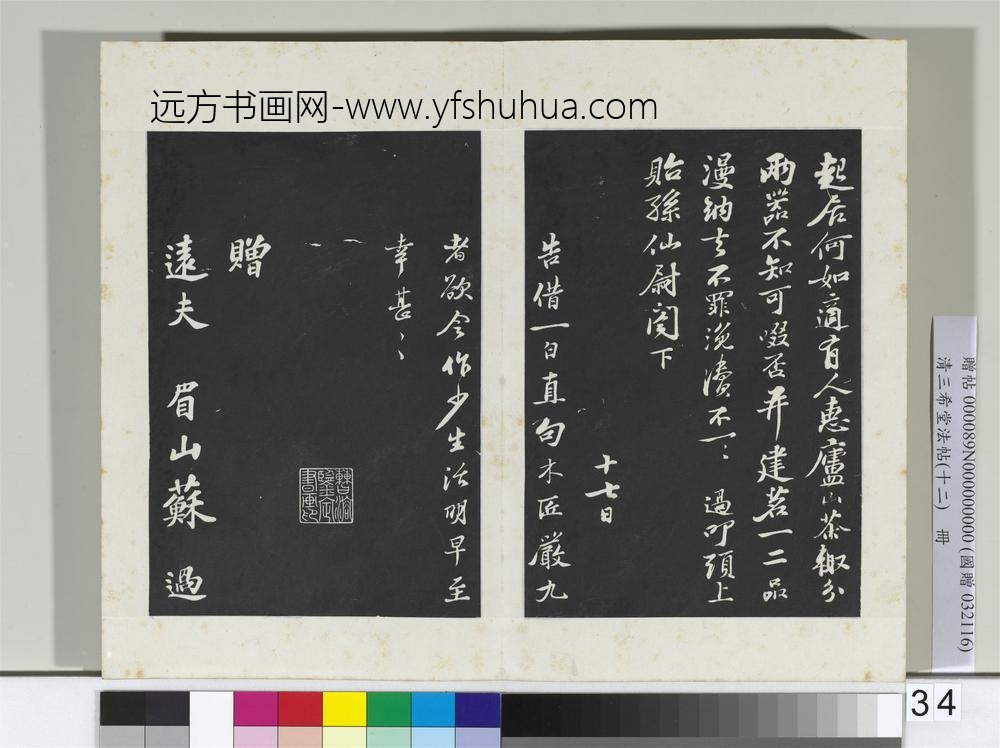 远方书画网-www.yfshuhua.com
起居何如適有人惠廬山茶輙分
兩器不知可啜否并建茗一二品
漫納去不罪浼瀆不一〻過叩頭上
貽孫仙尉閣下
十七日
告借一白直句木匠嚴九
者欲令作少生活明早至
幸甚〻
贈
遠夫 眉山蘇 過
贈帖 000089N000000000 (國贈 032116)
清三希堂法帖(十二) 冊
34